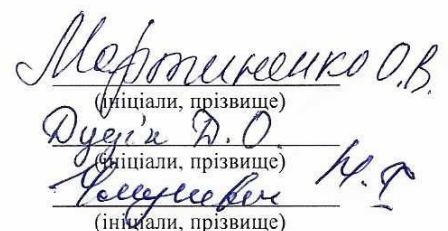 Мартиненко О.В.
(ініціали, прізвище)
Дудік Д.О.
(ініціали, прізвище)
Н.Т
(ініціали, прізвище)